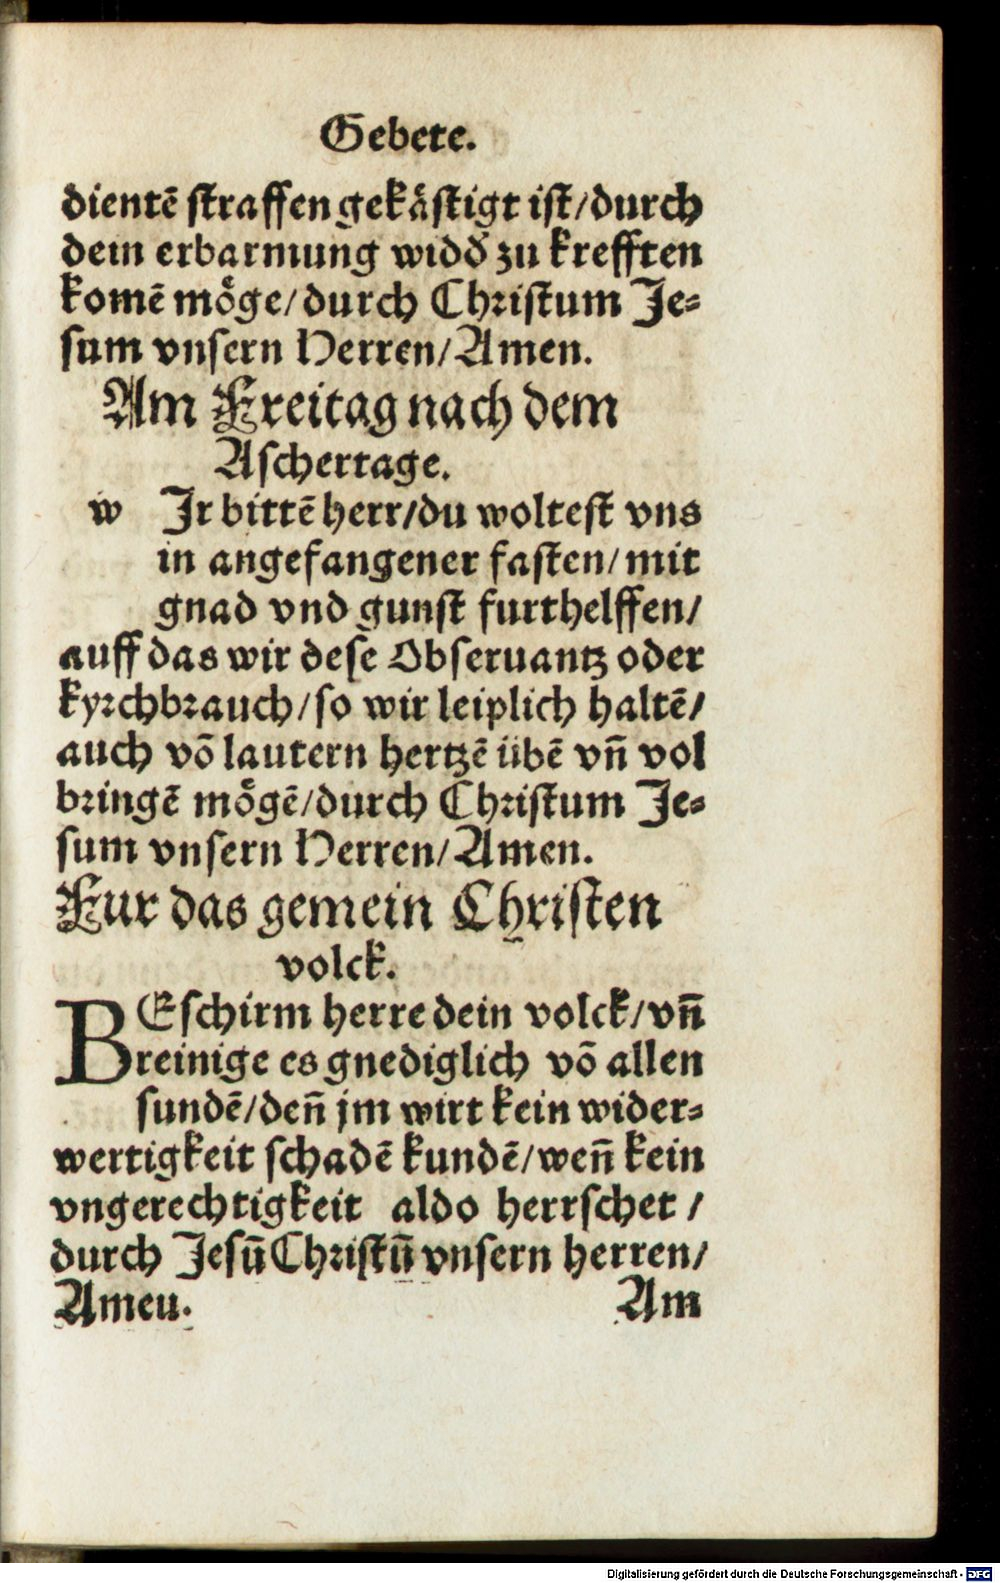 Gebete.
dientē straffen gekåstigt ist/durch
dein erbarmung widd̕ zu krefften
komē mo̊ge/durch Christum Je⸗
sum vnsern Herren/Amen.
Am Freitag nach dem
Aschertage.
w Jr bittē herr/du woltest vns
in angefangener fasten/mit
gnad vnd gunst furthelffen/
auff das wir dese Obseruantz oder
kyrchbrauch/so wir leiplich haltē/
auch vō lautern hertzē übē vn̄ vol
bringē mo̊gē/durch Christum Je⸗
sum vnsern Herren/Amen.
Fur das gemein Christen
volck.
BEschirm herre dein volck/vn̄
reinige es gnediglich vō allen
sundē/den̄ jm wirt kein wider⸗
wertigkeit schadē kundē/wen̄ kein
vngerechtigkeit aldo herrschet /
durch Jesū Christū vnsern herren/
Ameu. Am
Digitalisierung gefördert durch die Deutsche Forschungsgemeinschaft - DFG